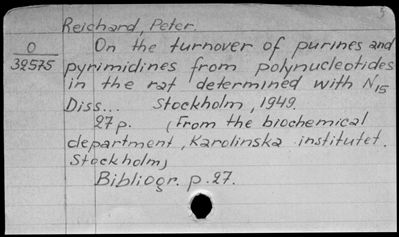 Reichard, Peter.
O On the turnover of purines and
39575 pyrimidines from polynucleotides
in the rat determined with N15
Diss... Stockholm, 1949.
27 p. (From the biochemical
department, Karolinska institutet.
Stockholm)
Bibliogr. p. 27.